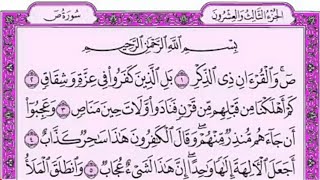 الجزء الثالث والعشرون
سورة ص
بِسْمِ اللَّهِ الرَّحْمَٰنِ الرَّحِيمِ
صٓ ۚ وَالْقُرْءَانِ ذِي الذِّكْرِ ١ بَلِ الَّذِينَ كَفَرُوا فِي عِزَّةٍ وَشِقَاقٍ ٢
كَمْ أَهْلَكْنَا مِن قَبْلِهِم مِّن قَرْنٍ فَنَادَوا وَّلَاتَ حِينَ مَنَاصٍ ٣ وَعَجِبُوا
أَن جَاءَهُم مُّنذِرٌ مِّنْهُمْ ۖ وَقَالَ الْكَٰفِرُونَ هَٰذَا سَٰحِرٌ كَذَّابٌ ٤
أَجَعَلَ الْءَالِهَةَ إِلَٰهًا وَٰحِدًا ۖ إِنَّ هَٰذَا لَشَيْءٌ عُجَابٌ ٥ وَانطَلَقَ الْمَلَأُ